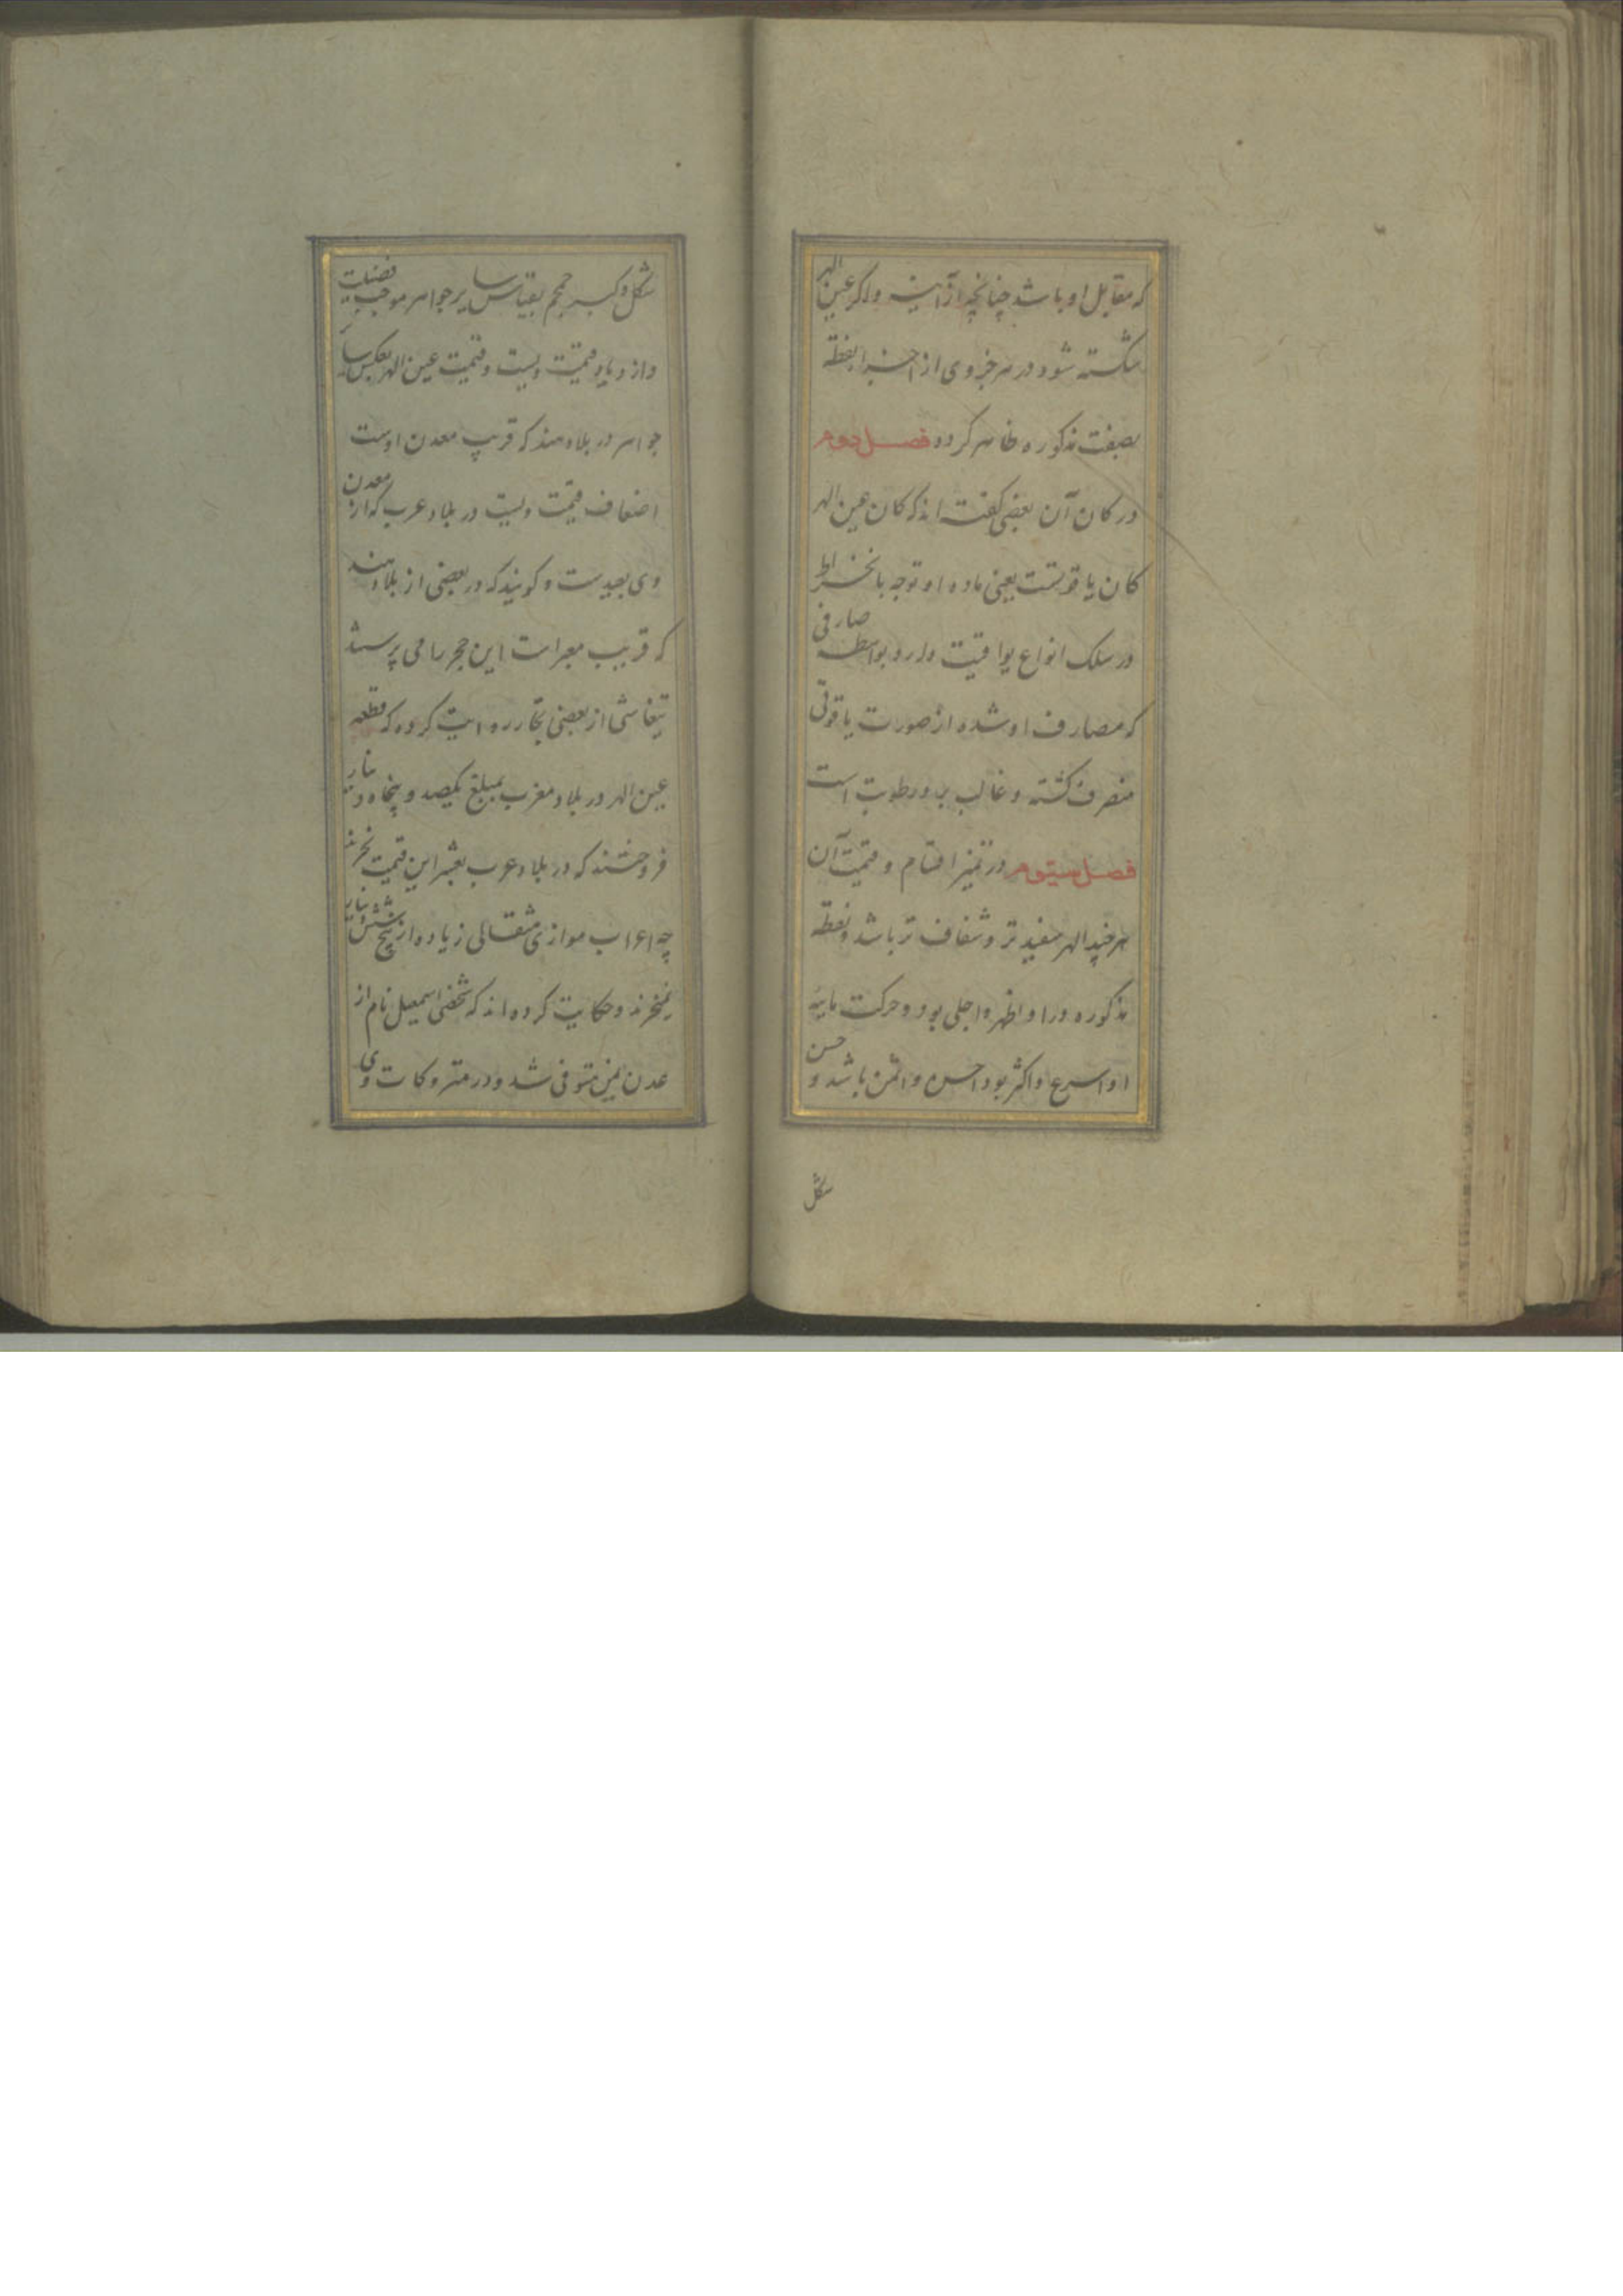 که مقابل او باشد چنانچه از آینه و اگر عین الهر
شکسته شود در هر جزوی از اجزا نقطه
بصفت مذکوره ظاهر کردد فصل دوم
در کان آن بعضی کفته اند که کان عین الهر
کان یاقوتست یعنی ماده او توجه بانخراط
در سلک انواع یواقیت دارد بواسطه صارفی
که مصارف او شده از صورت یاقوتی
منصرف کشته و غالب برو رطوبت است
فصل سیوم در تمیز اقسام و قیمت آن
هر چند الهر سفید تر و شفاف تر باشد و نقطه
مذکوره در او اظهر و اجلی بود و حرکت مایه
او اسرع و اکثر بود احسن و اثمن باشد و حسن
شکل
شکل و کبر حجم بقیاس سایر جواهر موجب فضیلت
و ازدیاد قیمت ویست و قیمت عین الهر بعکس سایر
جواهر در بلاد هند که قریب معدن اوست
اضعاف قیمت ویست در بلاد عرب که از معدن
وی بعیدست و کویند که در بعضی از بلاد هند
که قریب معبرات این حجر را می پرستند
تیفاشی از بعضی تجار روایت کرده که قطعه
عین الهر در بلاد مغرب بمبلغ یکصد و پنجاه دینار
فروختند که در بلاد عرب بعشر این قیمت نخرند
چه اعراب موازی مثقالی زیاده از پنج شش دینار
نمیخرند و حکایت کرده اند که شخصی اسمعیل نام از
عدن یمن متوفی شد و در متروکات وی